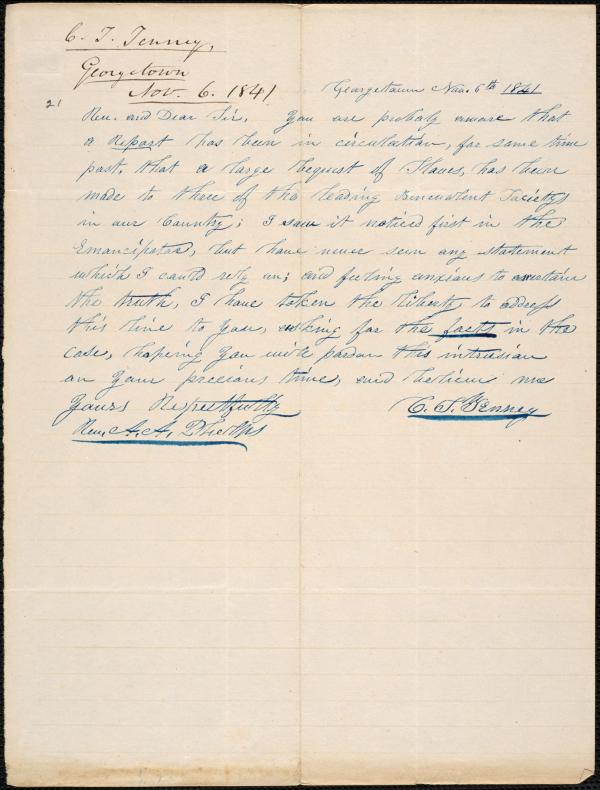 C. T. Tenney,
Georgetown
Nov. 6. 1841
Georgetown Nov. 6th 1841
21
Rev. and Dear Sir, You are probaly aware that
a Report has been in circulation, for some time
past, that a large bequest of Slaves, has been
made to three of the leading Benevolent Societys
in our Country; I saw it noticed first in the
Emancipator, but have never seen any statement
which I could rely on; and feeling anxious to
the truth, I have taken the liberty to address
this line to you, asking for the facts in the
case, hopeing you will pardon this intrusion
on your precious time, and believe me
Yours Respectfully
C. T. Tenney
Rev. A. A. Phelps